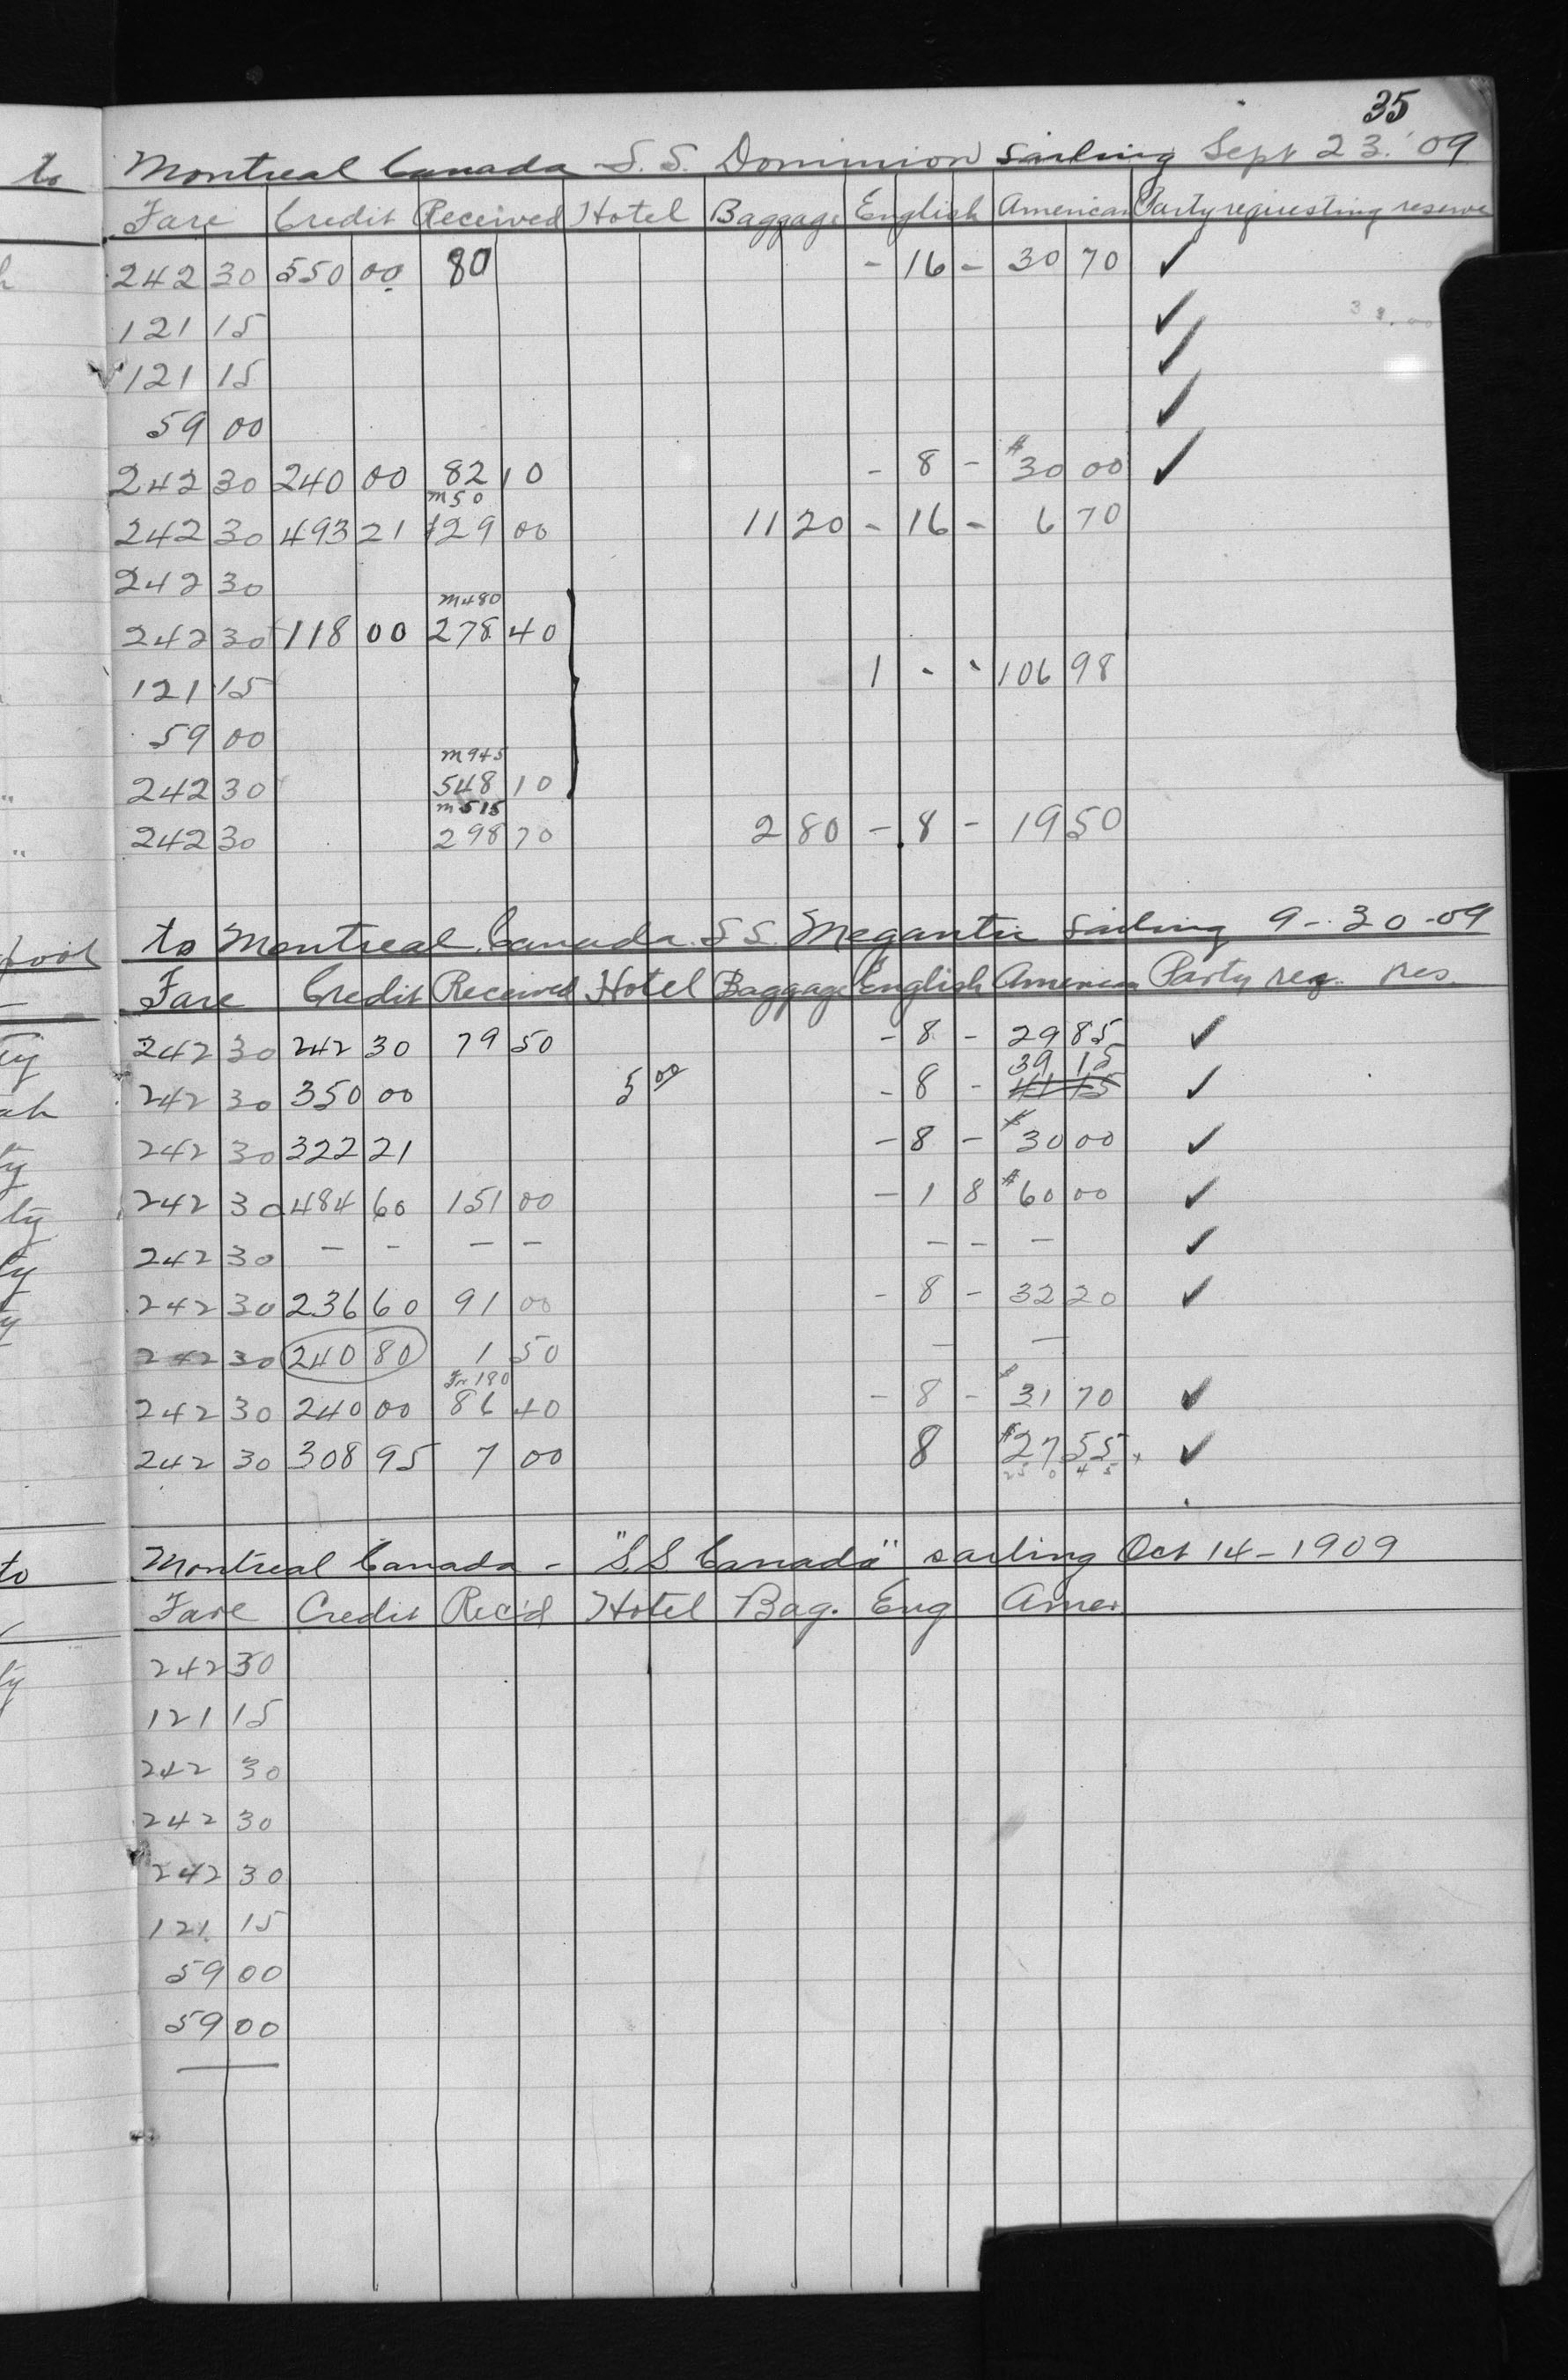 35
to Montreal Canada S.S. Dominion Sailing Sept 23. '09
Fare Credit Received Hotel Baggage English American Party requesting reserve
242 30 550 00 80 - 16 - 30 70 ✓
121 15 ✓
121 15 ✓
59 00 ✓
242 30 240 00 82 10 - 8 - $30 00 ✓
m 50
242 30 493 21 129 00 11 20 - 16 - 6 70
242 30
m 480
242 30 118 00 278 40
1 - - 106 98
121 15
59 00
m 945
242 30 548 10
m 515
242 30 298 70 2 80 - 8 - 19 50
to Montreal Canada. S S. Megantic Sailing 9-30-09
Fare Credit Received Hotel Baggage English American Party req. res.
242 30 242 30 79 50 - 8 - 29 85 ✓
39 15
242 30 350 00 5 00 - 8 - 41 15 ✓
242 30 322 21 - 8 - $30 00 ✓
242 30 484 60 151 00 - 1 8 $60 00 ✓
242 30 - - - - - - - ✓
242 30 236 60 91 00 - 8 - 32 20 ✓
242 30 240 80 1 50 - -
242 30 240 00 86 40 - 8 - $31 70 ✓
242 30 308 95 7 00 8 $27 55 ✓
to Montreal Canada - "S.S Canada" sailing Oct 14-1909
Fare Credit Rec'd Hotel Bag. Eng Amer
242 30
121 15
242 30
242 30
242 30
121 15
59 00
59 00